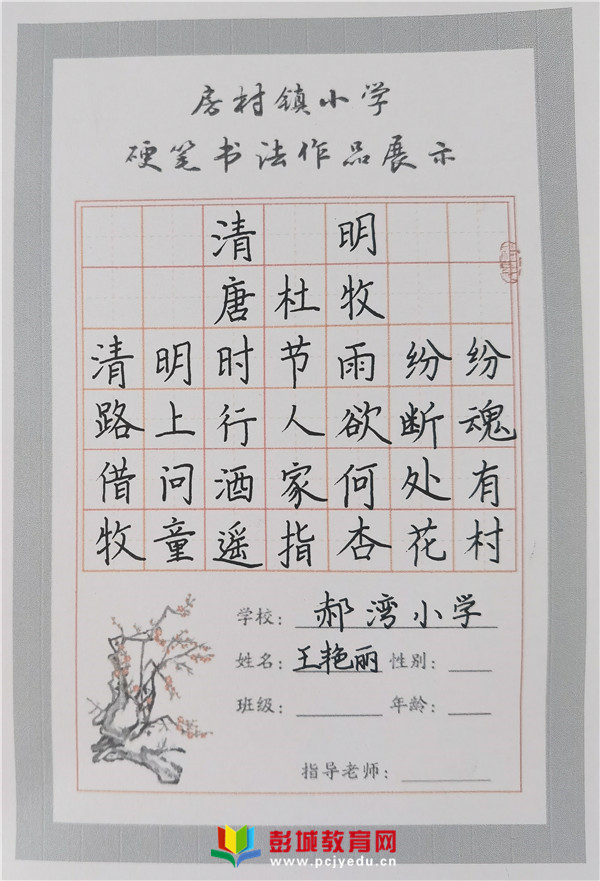 房村镇小学
硬笔书法作品展示
清明
唐杜牧
清明时节雨纷纷
路上行人欲断魂
借问酒家何处有
牧童遥指杏花村
学校：郝湾小学
姓名：王艳丽 性别：
班级： 年龄：
指导老师：
彭城教育网
www.pcjyedu.cn